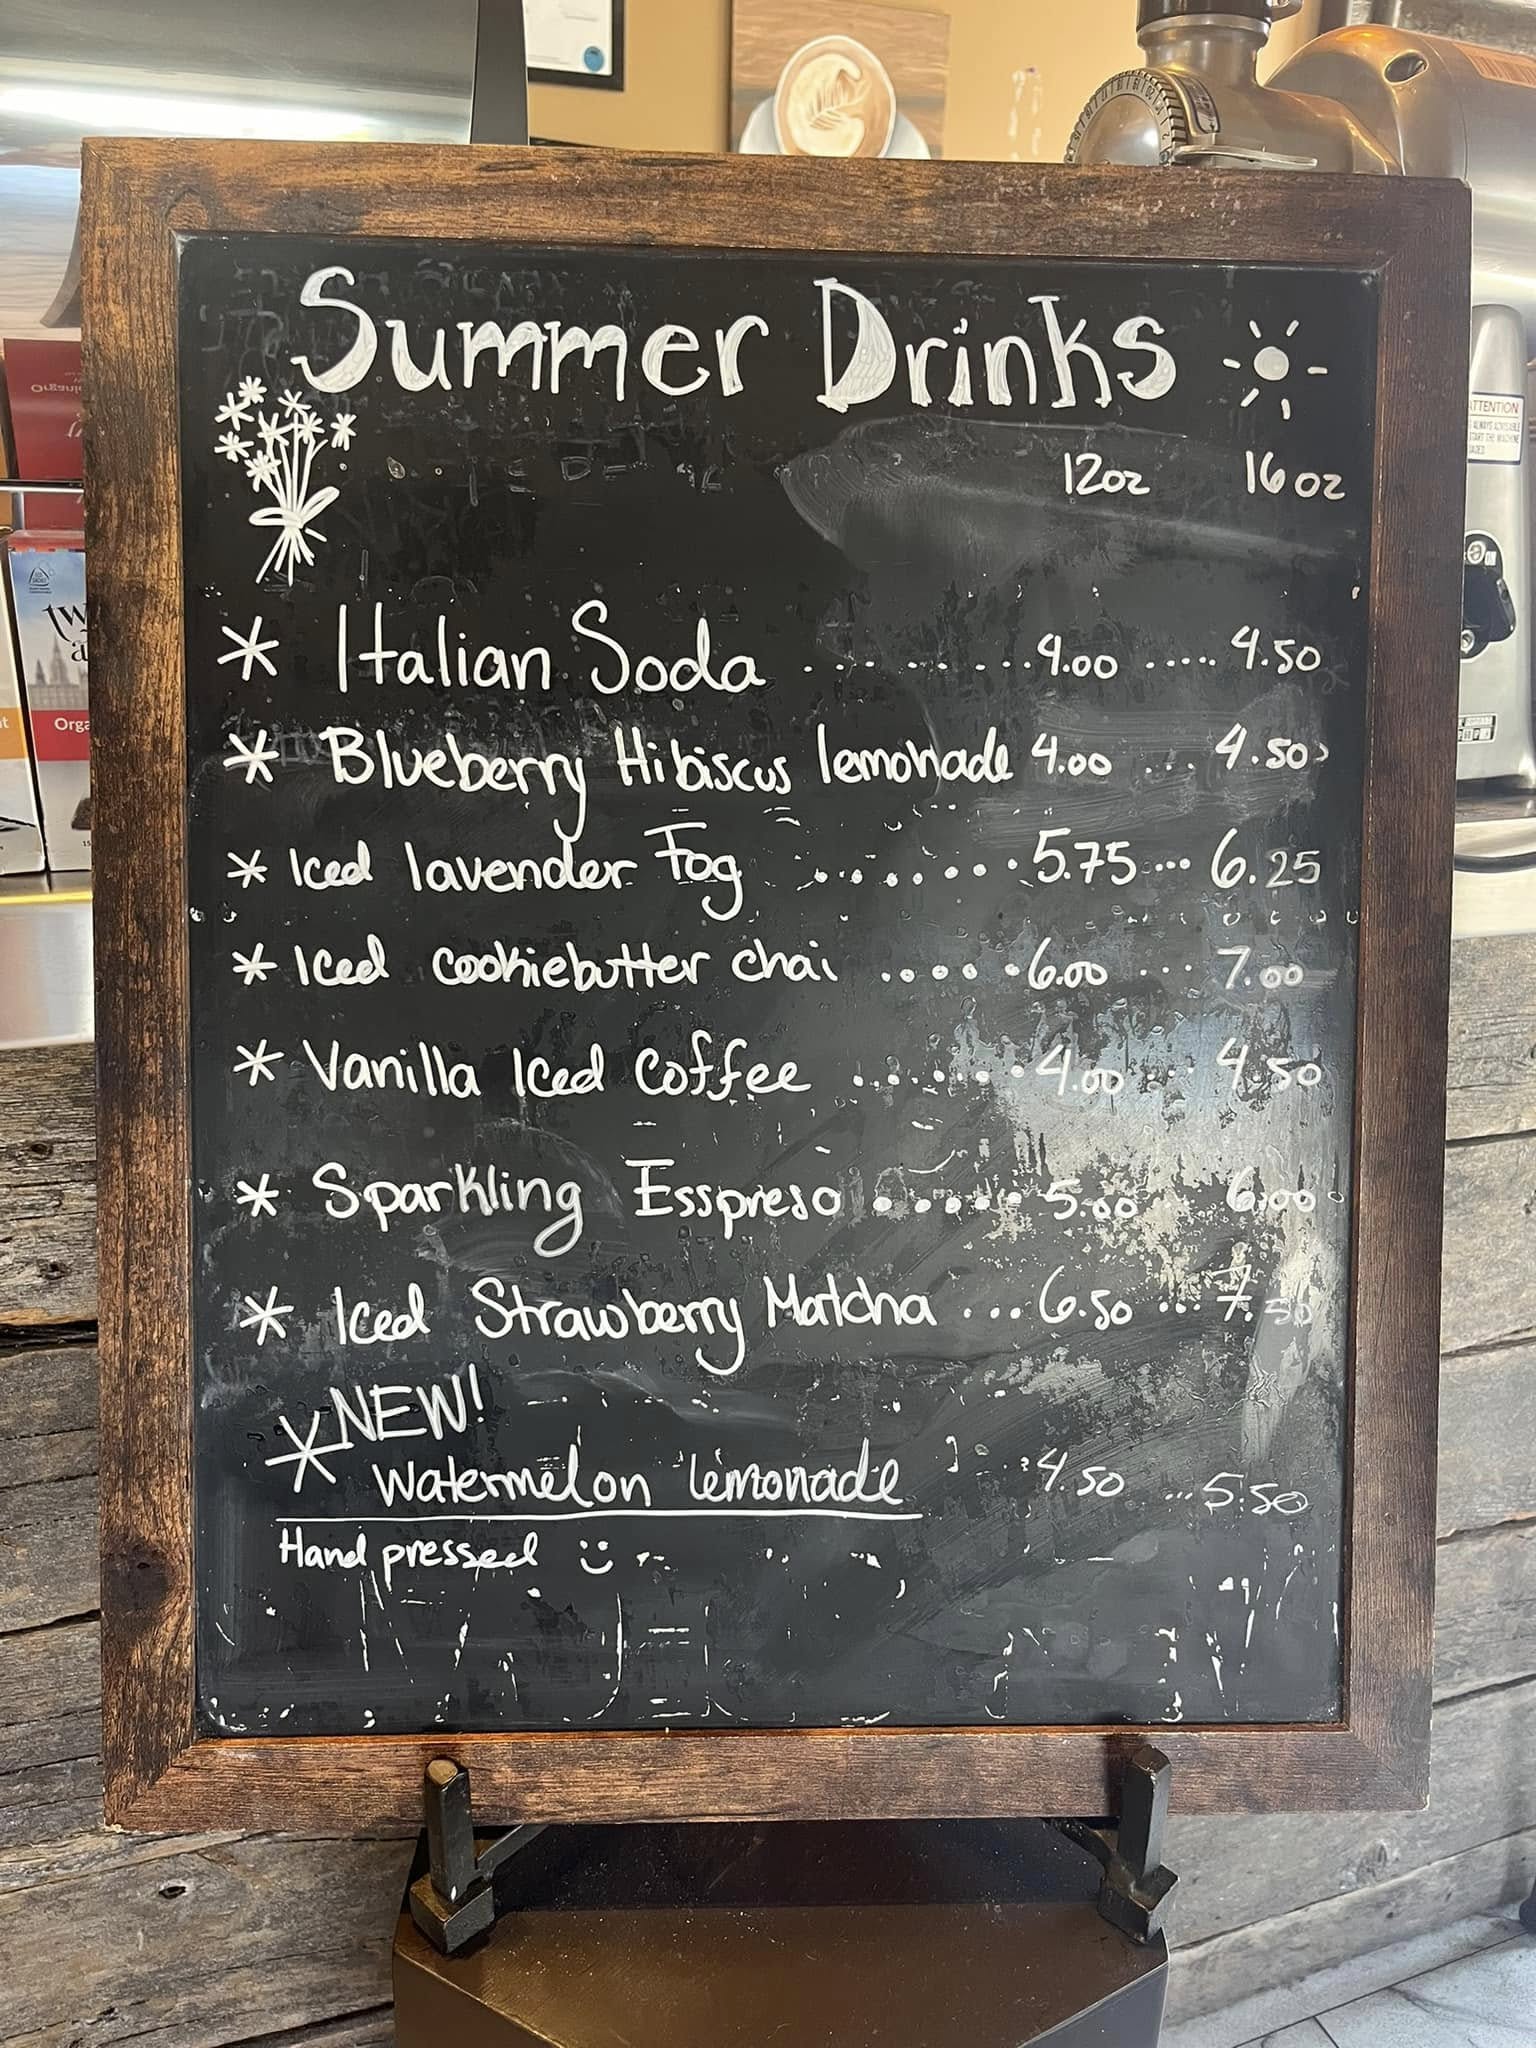 Summer Drinks
12oz 16oz
* Italian Soda ......... 4.00 ..... 4.50
* Blueberry Hibiscus lemonade 4.00 ... 4.50
* Iced lavender Fog ........ 5.75 ... 6.25
* Iced cookiebutter chai ...... 6.00 ... 7.00
* Vanilla Iced coffee ....... 4.00 ... 4.50
* Sparkling Esspreso ...... 5.00 ... 6.00
* Iced Strawberry Matcha ... 6.50 ... 7.50
* NEW!
Watermelon lemonade .... 4.50 ... 5.50
Hand pressed
ATTENTION
Orga
ON